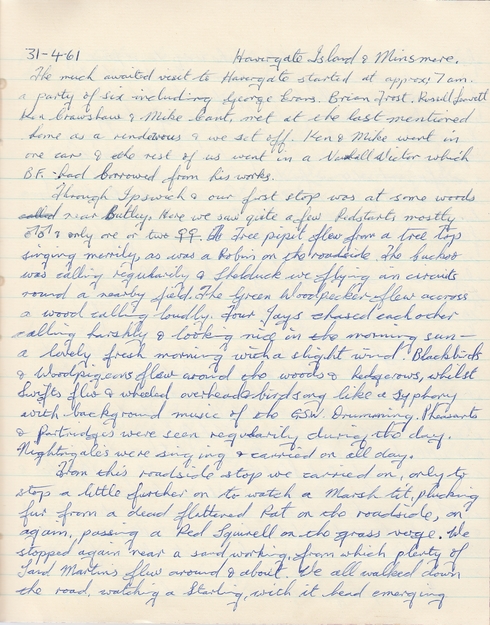 31-4-61 Havergate Island & Minsmere.
The much awaited visit to Havergate started at approx: 7 am.
a party of six including George Evans. Brian Frost. Russell Leavett
Ken Crawshaw & Mike Gantz, met at the last mentioned
home as a rendevous & we set off. Ken & Mike went in
one car & the rest of us went in a Vauxhall Victor which
B.F. had borrowed from his works.
Through Ipswich & our first stop was at some woods
called near Butley. Here we saw quite a few Redstarts mostly
♂♂ & only one or two ♀♀. Tree pipit flew from a tree top
singing merrily, as was a Robin on the roadside. The cuckoo
was calling regularily & Shelduck we flying in circuits
round a nearby field. The Green Woodpecker flew across
a wood calling loudly. Four Jays chased each other
calling harshly & looking nice in the morning sun -
a lovely fresh morning with a slight wind. Blackbirds
& Woodpigeons flew around the woods & hedgerows, whilst
Swifts flew & wheeled overhead birdsong like a syphony
with background music of the GSW. Drumming. Pheasants
& Partridges were seen regularily during the day.
Nightingale's were singing & carried on all day.
From this roadside stop we carried on, only to
stop a little further on to watch a Marsh tit, plucking
fur from a dead flattened Rat on the roadside, on
again, passing a Red Squirell on the grass verge. We
stopped again near a sand working, from which plenty of
Sand Martins flew around & about. We all walked down
the road, watching a Starling, with it head emerging